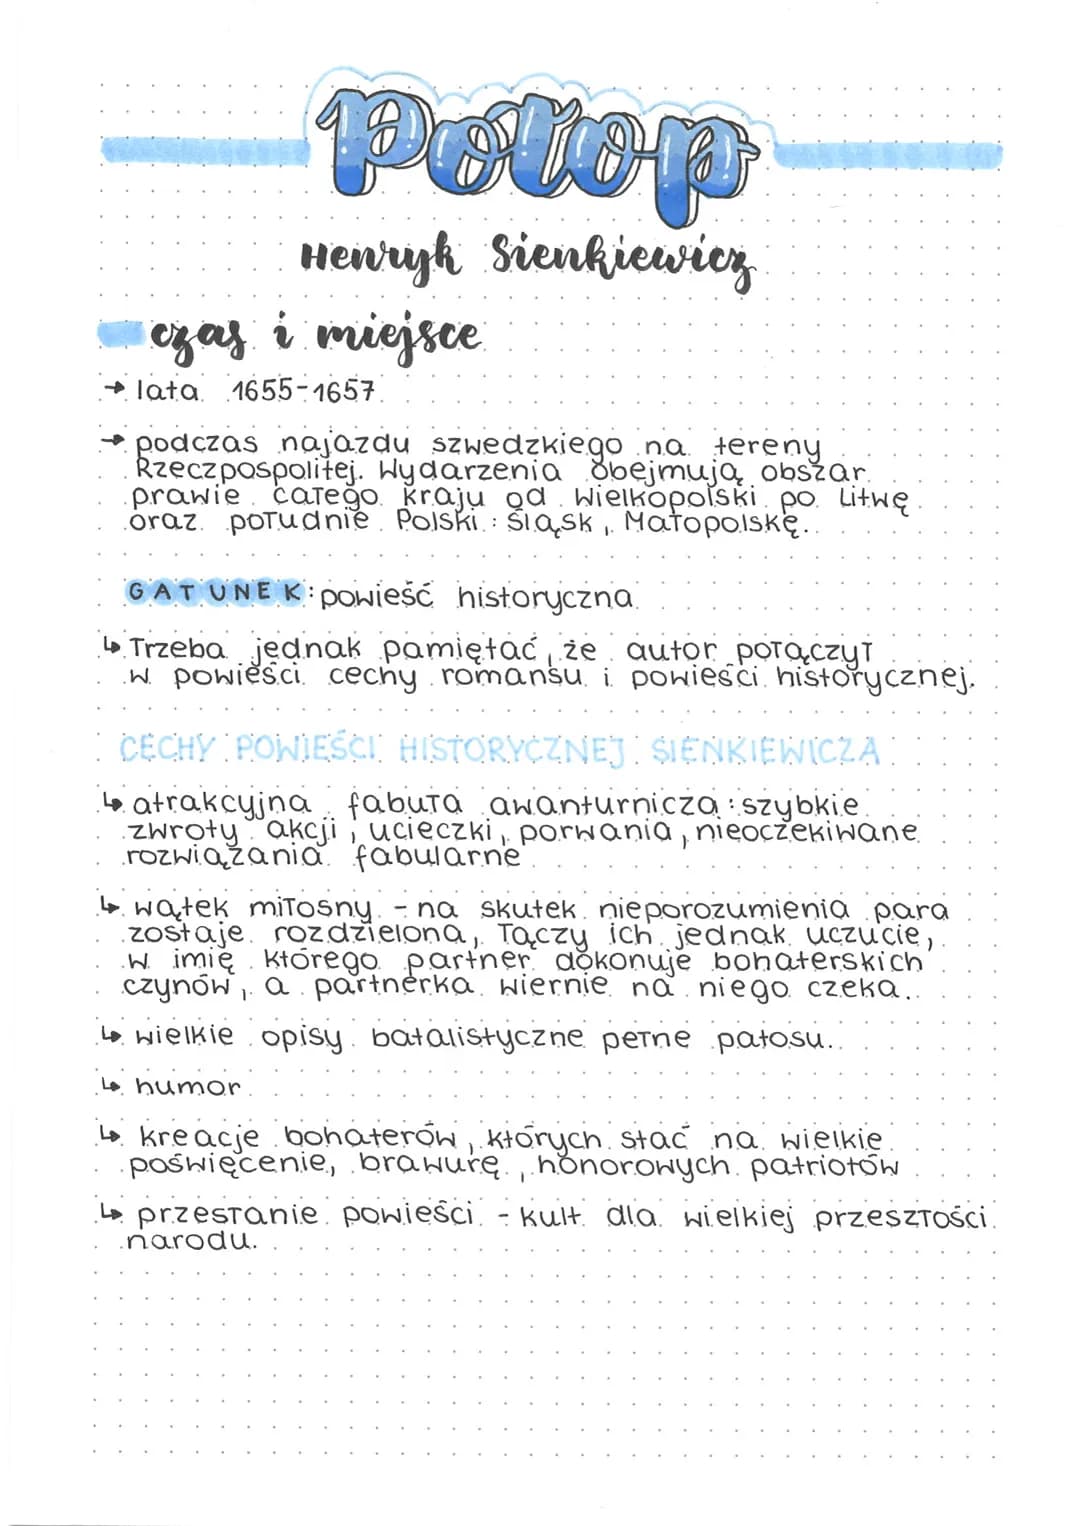 Potop
Henryk Sienkiewicz
czas i miejsce
→ lata 1655-1657
→ podczas najazdu szwedzkiego na tereny
Rzeczpospolitej. Wydarzenia obejmują obszar
prawie całego kraju od Wielkopolski po Litwę
oraz południe Polski : Śląsk, Małopolskę.
GATUNEK: powieść historyczna
↳ Trzeba jednak pamiętać, że autor połączył
w powieści cechy romansu i powieści historycznej.
CECHY POWIEŚCI HISTORYCZNEJ SIENKIEWICZA
↳ atrakcyjna fabuła awanturnicza : szybkie
zwroty akcji, ucieczki, porwania, nieoczekiwane
rozwiązania fabularne
↳ wątek miłosny - na skutek nieporozumienia para
zostaje rozdzielona, łączy ich jednak uczucie,
w imię którego partner dokonuje bohaterskich
czynów, a partnerka wiernie na niego czeka.
↳ wielkie opisy batalistyczne pełne patosu.
↳ humor
↳ kreacje bohaterów, których stać na wielkie
poświęcenie, brawurę, honorowych patriotów
↳ przesłanie powieści - kult dla wielkiej przeszłości
narodu.